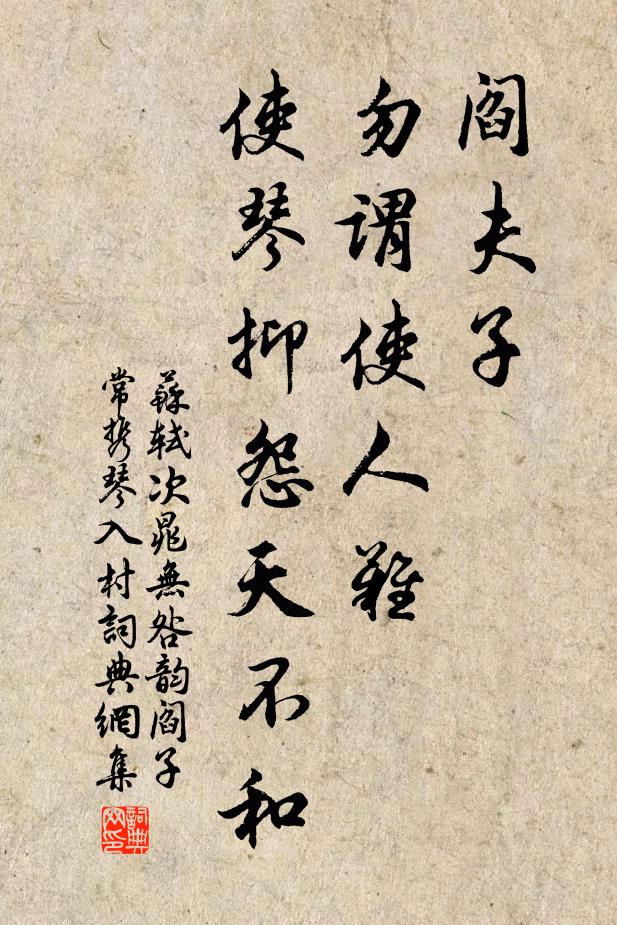 閻夫子
勿謂使人難
使琴抑怨天不和
蘇軾次晁無咎韵閻子
常携琴入村詞典網集
詞典
网印